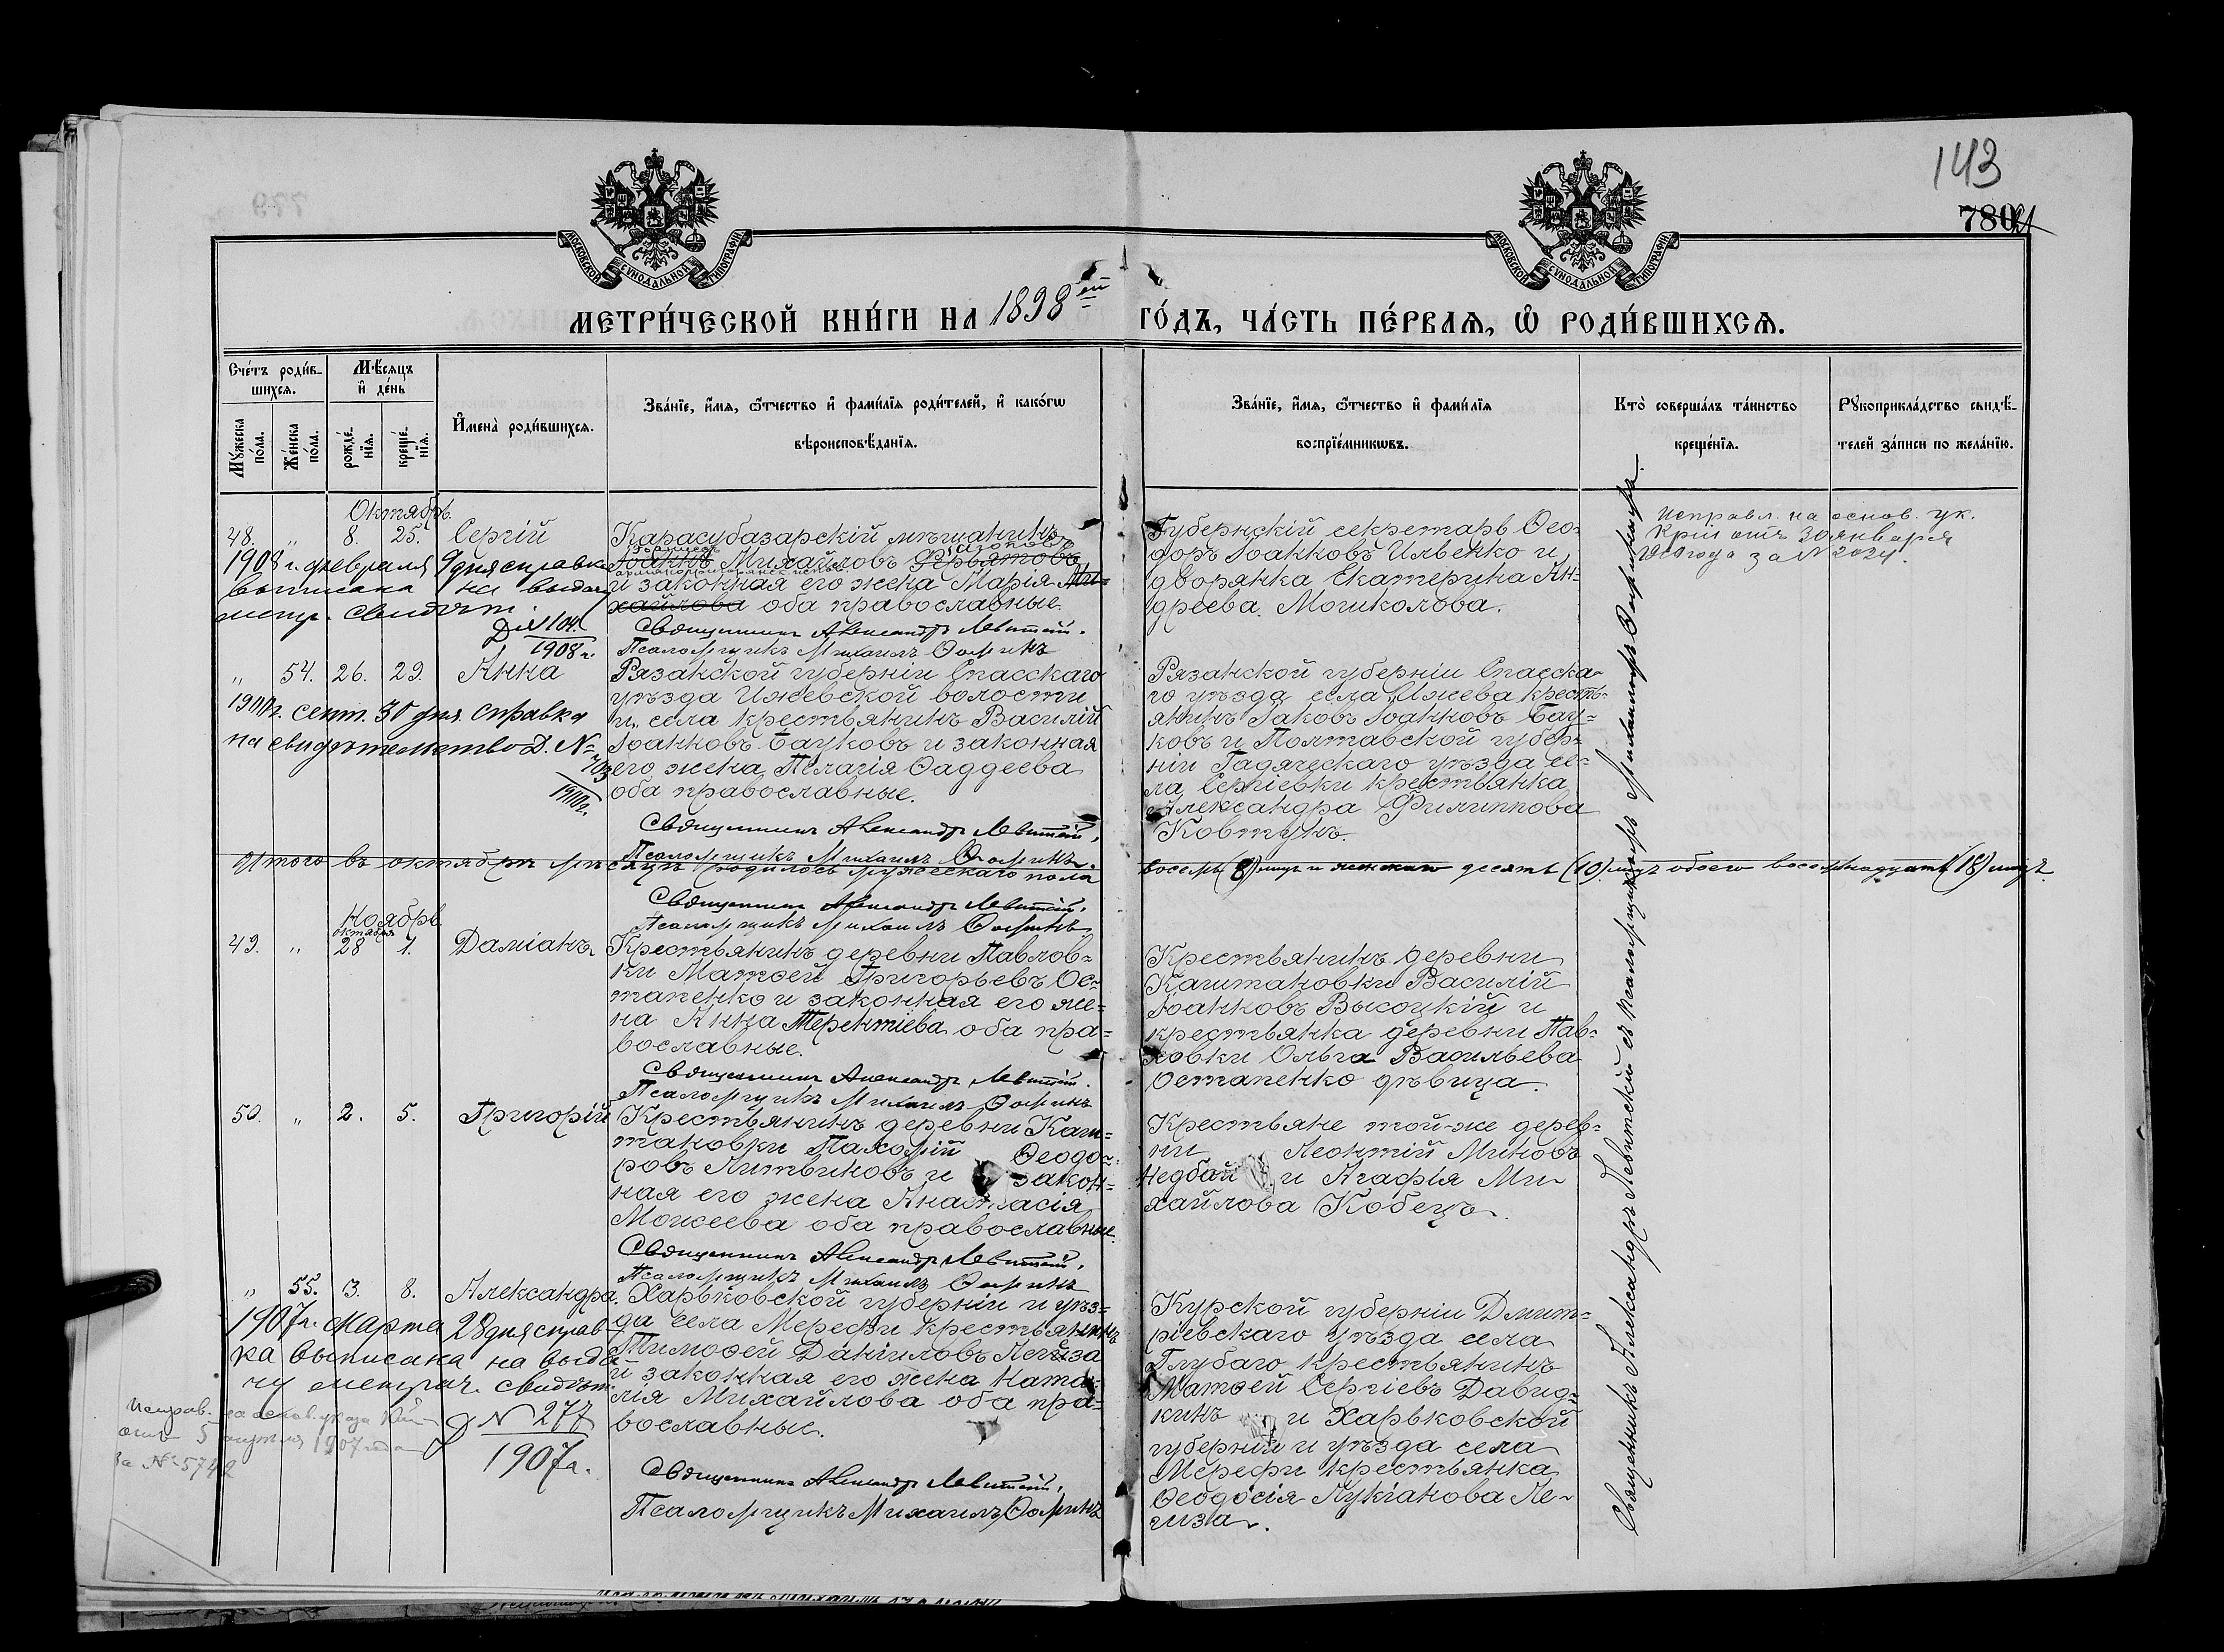 143
780
МОСКОВСКОЙ СѴНОДАЛЬНОЙ ТИПОГРАФІИ.
МОСКОВСКОЙ СѴНОДАЛЬНОЙ ТИПОГРАФІИ.
МЕТРИ́ЧЕСКОЙ КНИ́ГИ НА 1898ой ГО́ДЪ, ЧА́СТЬ ПЕ́РВАѦ, Ѽ РОДИ́ВШИХСѦ.
Сче́тъ роди́в-
шихсѧ.
Мꙋ́жеска по́ла.
Же́нска по́ла.
Мѣ́сѧцъ
и҆ де́нь
рожде́-
нїѧ.
креще́-
нїѧ.
И҆мена̀ роди́вшихсѧ.
Зва́нїе, и҆́мѧ, ѻ҆́тчество и҆ фами́лїѧ роди́телей, и҆ како́гѡ
вѣроисповѣ́данїѧ.
Зва́нїе, и҆́мѧ, ѻ҆́тчество и҆ фами́лїѧ
воспрїе́мникѡвъ.
Кто̀ соверша́лъ та́инство
креще́нїѧ.
Рꙋкоприкла́дство свидѣ́-
телей за́писи по жела́нїю.
Октябрь.
48. „ 8. 25. Сергій
Карасубазарскій мѣщанинъ
Іоаннъ Михайловъ
и законная его жена Марія Ми-
хайлова оба православные.
Священникъ Александръ Левитскій.
Псаломщикъ Михаилъ Ѳоминъ
Губернскій секретарь Ѳео-
доръ Іоанновъ Ильенко и
дворянка Екатерина Ан-
дреева Могиколова.
Исправл. на основ. ук.
30 января
года за № 2024.
1908 г. февраля 9 дня справка
выписана на выдачу
метр. свидѣт.
Д № 104
1908 г.
„ 54. 26. 29. Анна
Рязанской губерніи Спасскаго
уѣзда Ижевской волости
и села крестьянинъ Василій
Іоанновъ Бауковъ и законная
его жена Пелагія Ѳаддеева
оба православные.
Священникъ Александръ Левитскій,
Псаломщикъ Михаилъ Ѳоминъ.
Рязанской губерніи Спасска-
го уѣзда села Ижева кресть-
янинъ Іаковъ Іоанновъ Бау-
ковъ и Полтавской губер-
ніи Гадяческаго уѣзда се-
ла Сергіевки крестьянка
Александра Филиппова
Ковтунъ.
1900 г. сент. 30 дня. Справка
на свидѣтельство Д. №
703
1900 г.
Итого въ октябрѣ мѣсяцѣ родилось мужескаго пола восемь (8) лицъ и женскаго десять (10) лицъ обоего восемнадцать (18) лицъ.
Священникъ Александръ Левитскій.
Псаломщикъ Михаилъ Ѳоминъ
Ноябрь
октября
49. „ 28 1. Даміанъ
Крестьянинъ деревни Павлов-
ки Матѳей Григорьевъ Ос-
тапенко и законная его же-
на Анна Терентіева оба пра-
вославные.
Священникъ Александръ Левитскій.
Псаломщикъ Михаилъ Ѳоминъ
Крестьянинъ деревни
Каштановки Василій
Іоанновъ Высоцкій и
крестьянка деревни Пав-
ловки Ольга Васильева
Остапенко дѣвица.
50. „ 2. 5. Григорій
Крестьянинъ деревни Каш-
тановки Пахомій Ѳеодо-
ровъ Литвиновъ и закон-
ная его жена Анастасія
Моисеева оба православные.
Священникъ Александръ Левитскій,
Псаломщикъ Михаилъ Ѳоминъ
Крестьяне той-же дерев-
ни Леонтій Миновъ
Недбай и Агафія Ми-
хайлова Кобецъ.
„ 55. 3. 8. Александра.
Харьковской губерніи и уѣз-
да села Мерефи крестьянинъ
Тимоѳей Даніиловъ Легиза
и законная его жена Ната-
лія Михайлова оба пра-
вославные.
Священникъ Александръ Левитскій,
Псаломщикъ Михаилъ Ѳоминъ
Курской губерніи Дмит-
ріевскаго уѣзда села
Глубаго крестьянинъ
Матѳей Сергіевъ Давид-
кинъ и Харьковской
губерніи и уѣзда села
Мерефи крестьянка
Ѳеодосія Лукіанова Ле-
гиза.
1907 г. марта 28 дня справ-
ка выписана на выда-
чу метрич. свидѣт.
Д № 277
1907 г.
Исправ. на основ. указа
отъ 5 апрѣля 1907 года
за № 5742
Священникъ Александръ Левитскій съ псаломщикомъ Михаиломъ